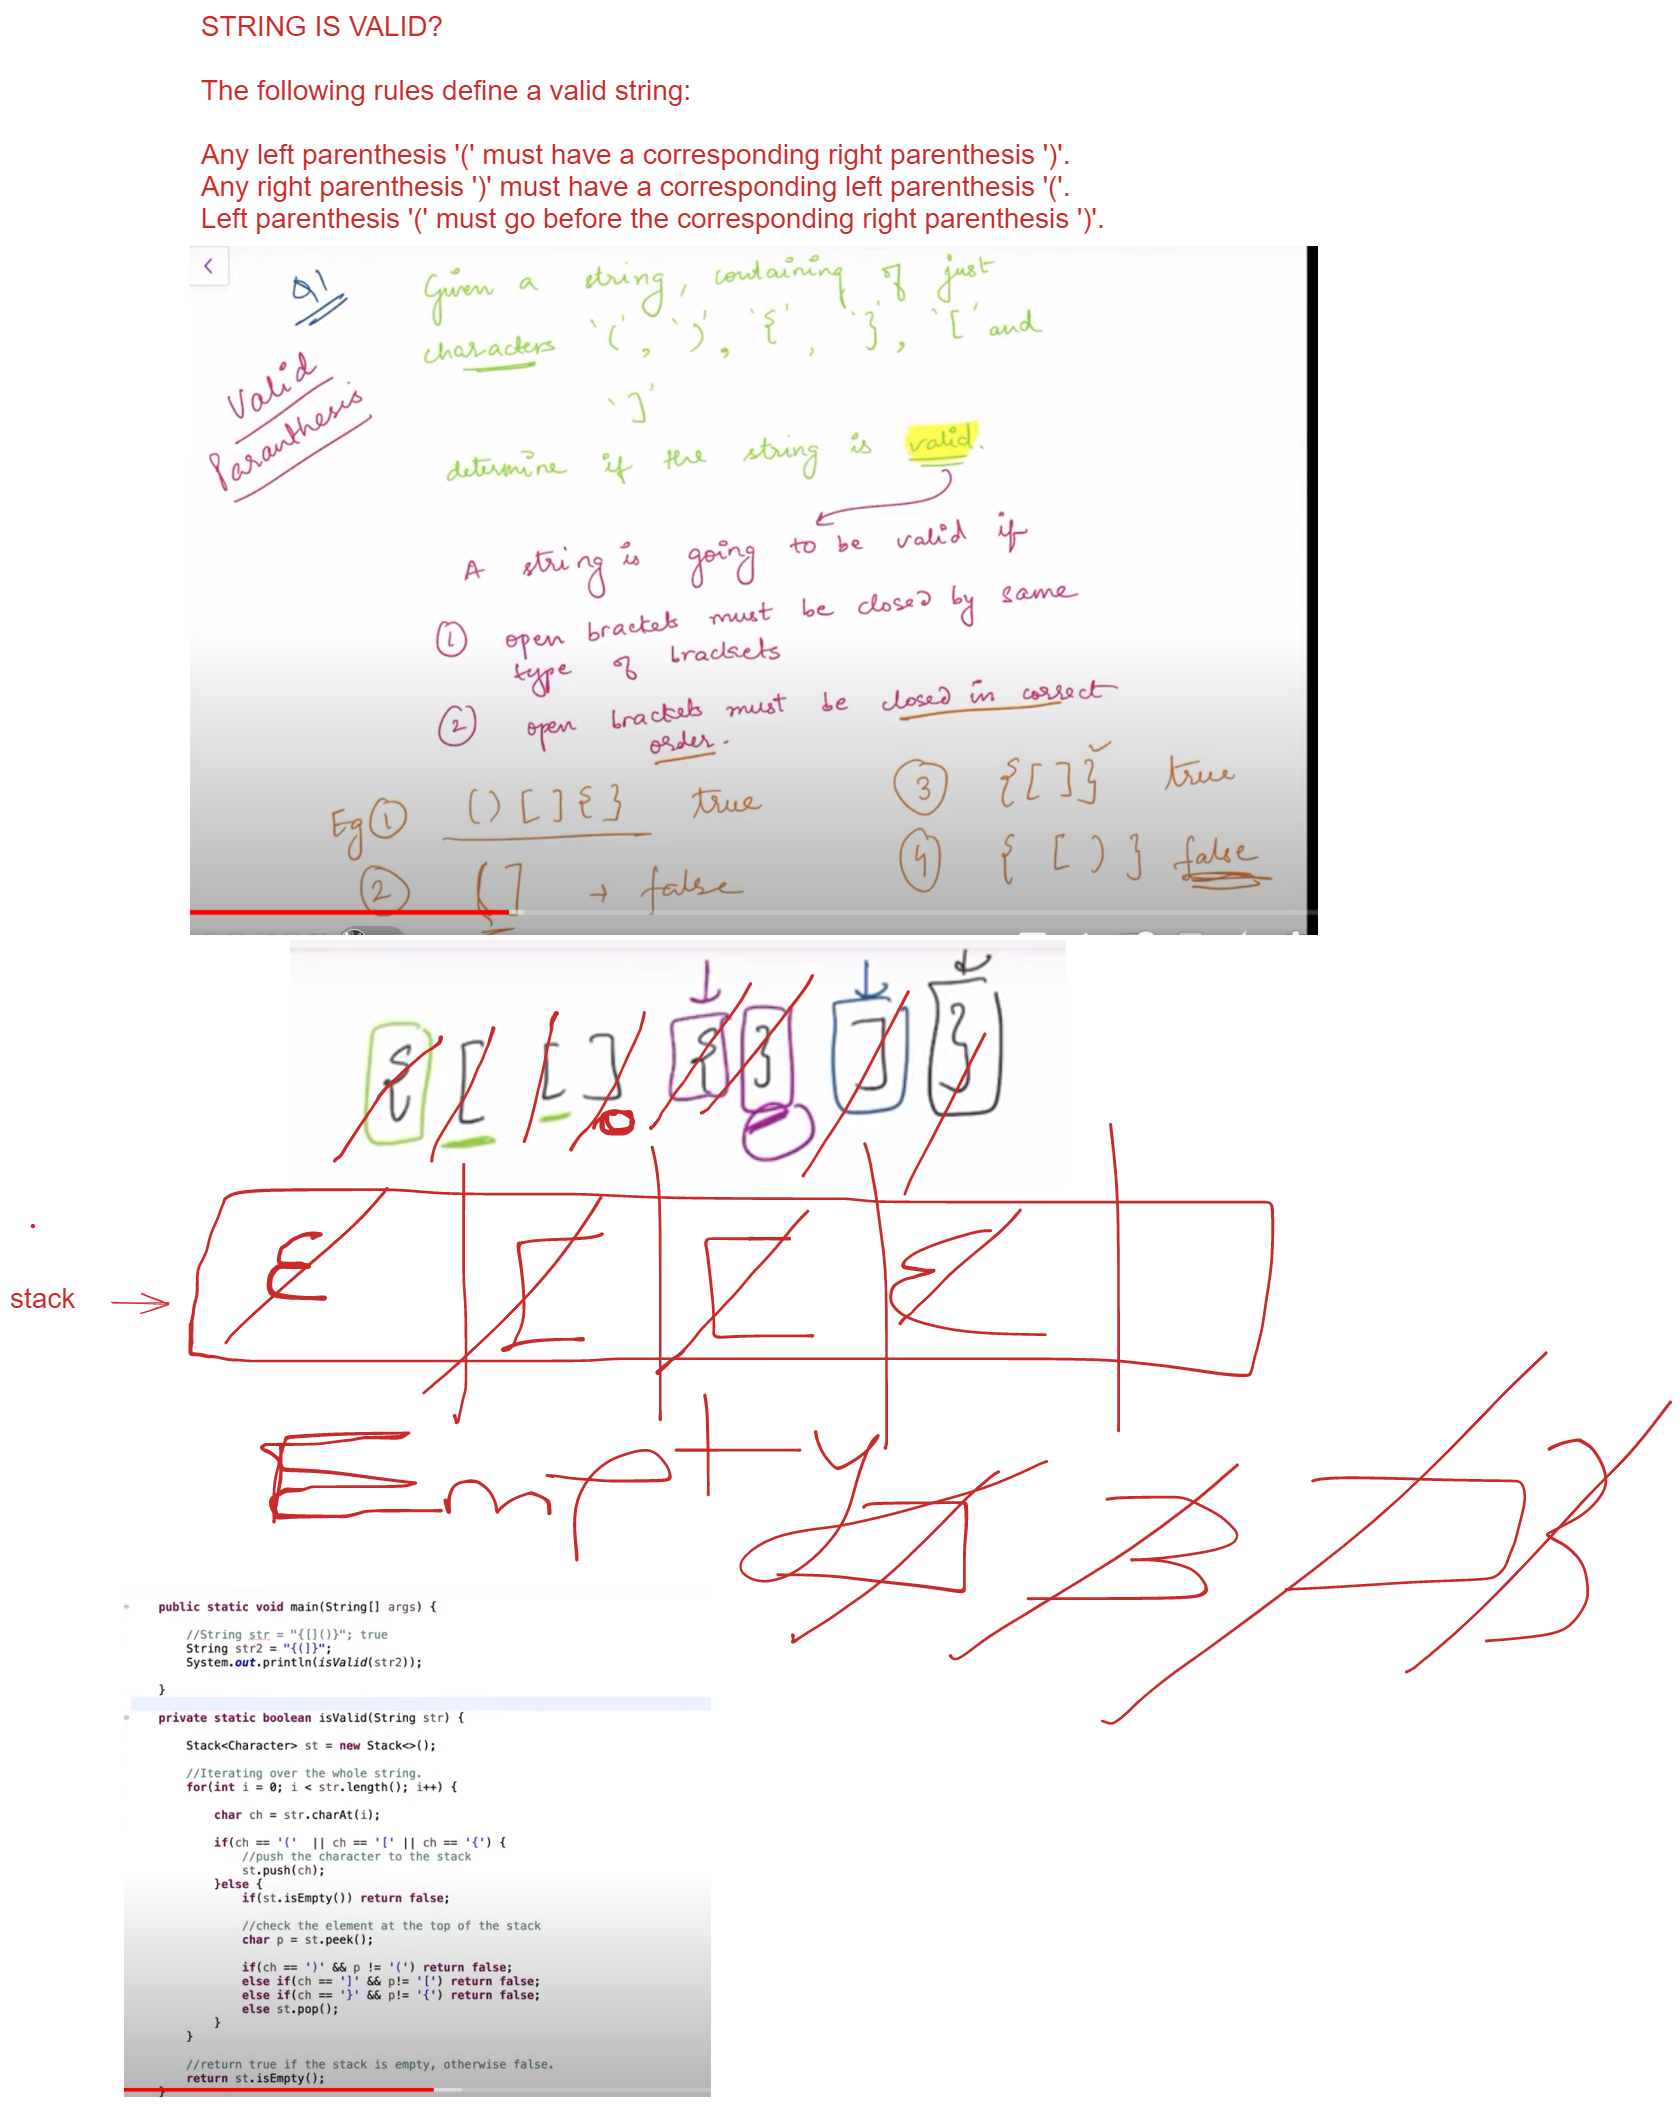 STRING IS VALID?
The following rules define a valid string:
Any left parenthesis '(' must have a corresponding right parenthesis ')'.
Any right parenthesis ')' must have a corresponding left parenthesis '('.
Left parenthesis '(' must go before the corresponding right parenthesis ')'.
Q1
Valid
Paranthesis
Given a string, containing of just
characters '(', ')', '{', '}', '[' and
']'
determine if the string is valid.
A string is going to be valid if
① open brackets must be closed by same
type of brackets
② open brackets must be closed in correct
order.
Eg ① ()[]{} true
② (] → false
③ {[]} true
④ {[)} false
{ [ [ ] { } ] }
stack
{ [ [ {
Empty
] } ] }
public static void main(String[] args) {
//String str = "{[]()}"; true
String str2 = "{(]}";
System.out.println(isValid(str2));
}
private static boolean isValid(String str) {
Stack<Character> st = new Stack<>();
//Iterating over the whole string.
for(int i = 0; i < str.length(); i++) {
char ch = str.charAt(i);
if(ch == '(' || ch == '[' || ch == '{') {
//push the character to the stack
st.push(ch);
}else {
if(st.isEmpty()) return false;
//check the element at the top of the stack
char p = st.peek();
if(ch == ')' && p != '(') return false;
else if(ch == ']' && p!= '[') return false;
else if(ch == '}' && p!= '{') return false;
else st.pop();
}
}
//return true if the stack is empty, otherwise false.
return st.isEmpty();
}